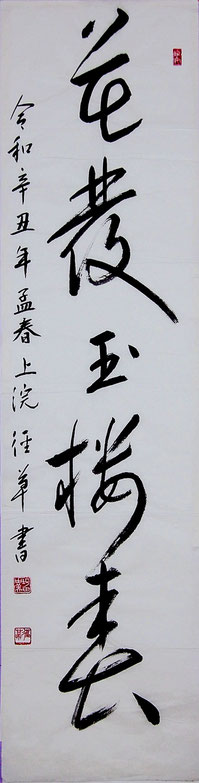 花發玉楼春
令和辛丑年孟春上浣 徑草書